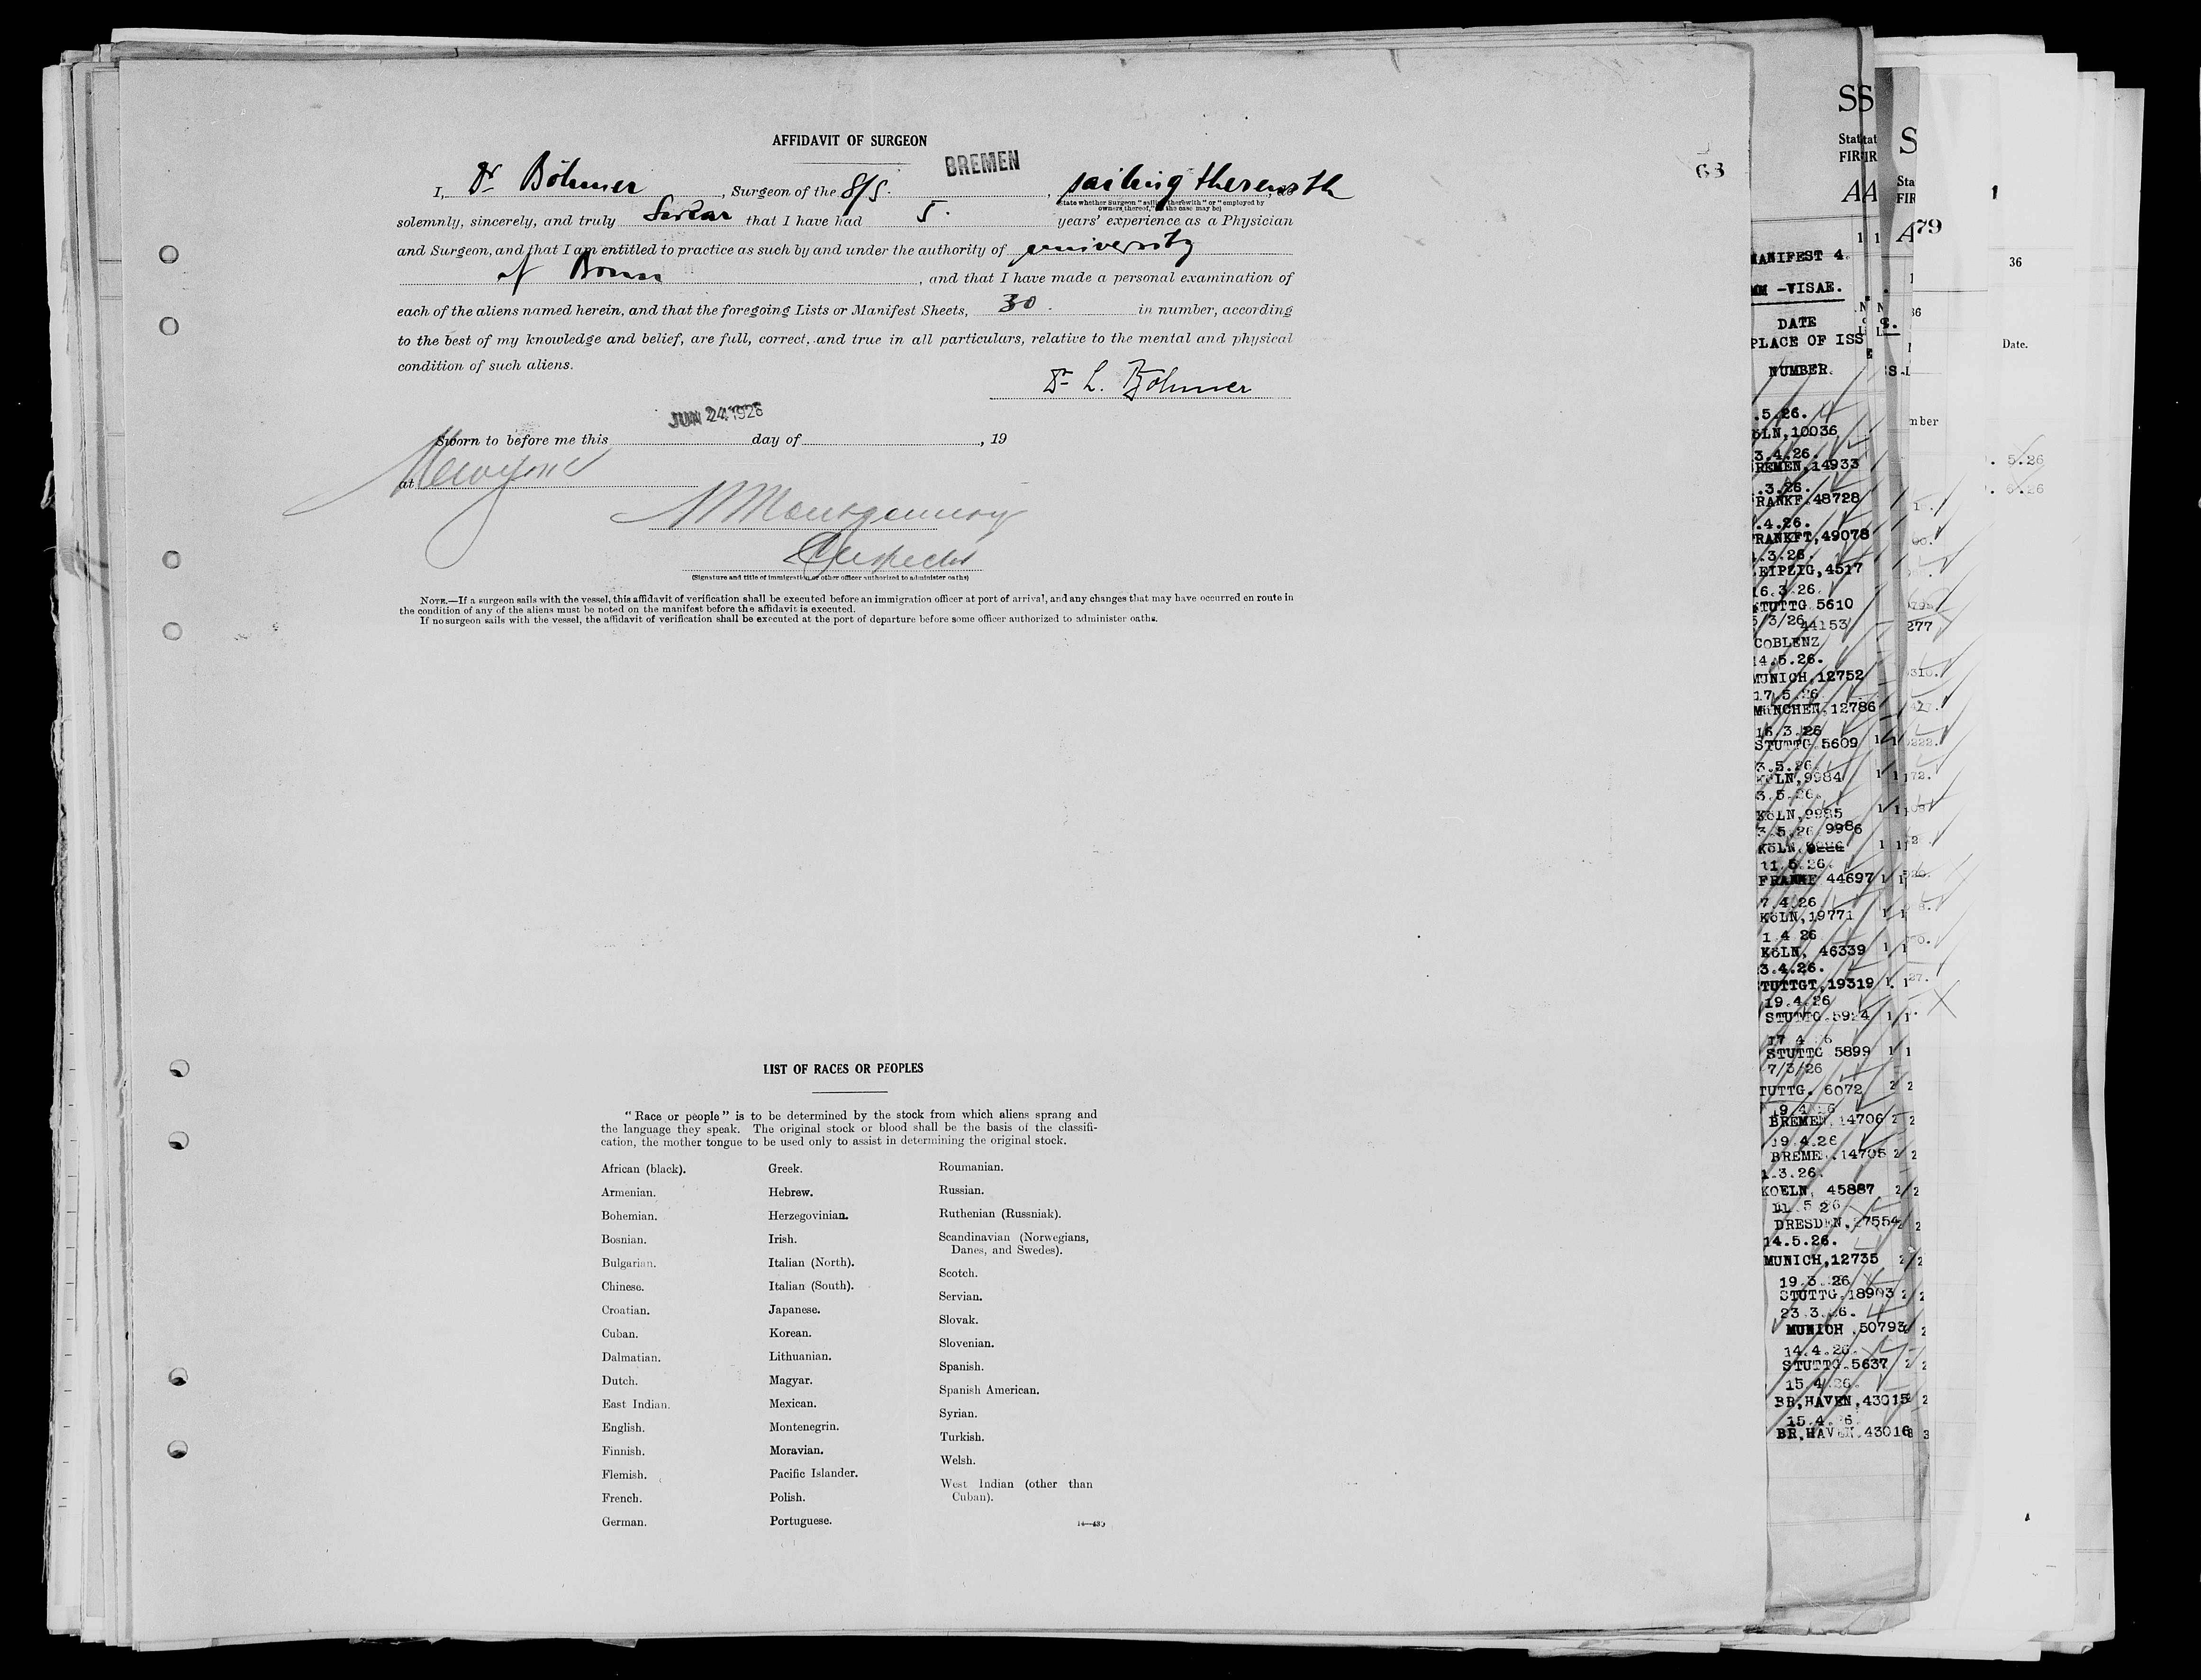 AFFIDAVIT OF SURGEON
68
I, Dr Böhmer, Surgeon of the S/S. BREMEN, sailing therewith, do
(State whether Surgeon "sailing therewith" or "employed by
owners thereof," as the case may be)
solemnly, sincerely, and truly that I have had 5. years' experience as a Physician
and Surgeon, and that I am entitled to practice as such by and under the authority of university
of Bonn, and that I have made a personal examination of
each of the aliens named herein, and that the foregoing Lists or Manifest Sheets, 30. in number, according
to the best of my knowledge and belief, are full, correct, and true in all particulars, relative to the mental and physical
condition of such aliens.
Dr L. Böhmer
JUN 24 1926
Sworn to before me this day of , 19
at New York
Montgomery
Inspector
(Signature and title of immigration or other officer authorized to administer oaths)
NOTE.—If a surgeon sails with the vessel, this affidavit of verification shall be executed before an immigration officer at port of arrival, and any changes that may have occurred en route in
the condition of any of the aliens must be noted on the manifest before the affidavit is executed.
If no surgeon sails with the vessel, the affidavit of verification shall be executed at the port of departure before some officer authorized to administer oaths.
LIST OF RACES OR PEOPLES
"Race or people" is to be determined by the stock from which aliens sprang and
the language they speak. The original stock or blood shall be the basis of the classifi-
cation, the mother tongue to be used only to assist in determining the original stock.
African (black).
Armenian.
Bohemian.
Bosnian.
Bulgarian.
Chinese.
Croatian.
Cuban.
Dalmatian.
Dutch.
East Indian.
English.
Finnish.
Flemish.
French.
German.
Greek.
Hebrew.
Herzegovinian.
Irish.
Italian (North).
Italian (South).
Japanese.
Korean.
Lithuanian.
Magyar.
Mexican.
Montenegrin.
Moravian.
Pacific Islander.
Polish.
Portuguese.
Roumanian.
Russian.
Ruthenian (Russniak).
Scandinavian (Norwegians,
Danes, and Swedes).
Scotch.
Servian.
Slovak.
Slovenian.
Spanish.
Spanish American.
Syrian.
Turkish.
Welsh.
West Indian (other than
Cuban).
MANIFEST 4.
-VISAE.
DATE
PLACE OF ISS
NUMBER.
.5.26.
ÖLN,10036
3.4.26.
REMEN,14933
.3.26.
RANKF.48728
.4.26.
RANKFT,49078
.3.26.
EIPZIG,4517
16.3.26.
STUTTG 5610
5/3/26 44153
COBLENZ
14.5.26.
MUNICH.12752
17.5.26
MÜNCHEN,12786
16.3.26
STUTTG.5609
3.5.26.
KÖLN,9984
3.5.26.
KÖLN,9985
3.5.26 9986
KÖLN,
11.5.26.
FRANKF 44697
7.4.26
KÖLN,19771
1.4 26
KÖLN, 46339
3.4.26.
TUTTGT,19319
19.4.26
STUTTG.5924
17 4 6
STUTTG 5899
7/3/26
TUTTG. 6072
19 4 26
BREMEN,14706
19.4.26
BREME .14705
1.3.26.
KOELN, 45887
11.5 26
DRESDEN,27554
14.5.26.
MUNICH,12735
19.3.26
STUTTG.18903
23.3.26.
MUNICH .50793
14.4.26.
STUTTG.5637
15 4 26.
BR,HAVEN,43015
15.4. 6.
BR,HAVEN.43016
79
1
36
Date.
5.26
6.26
277